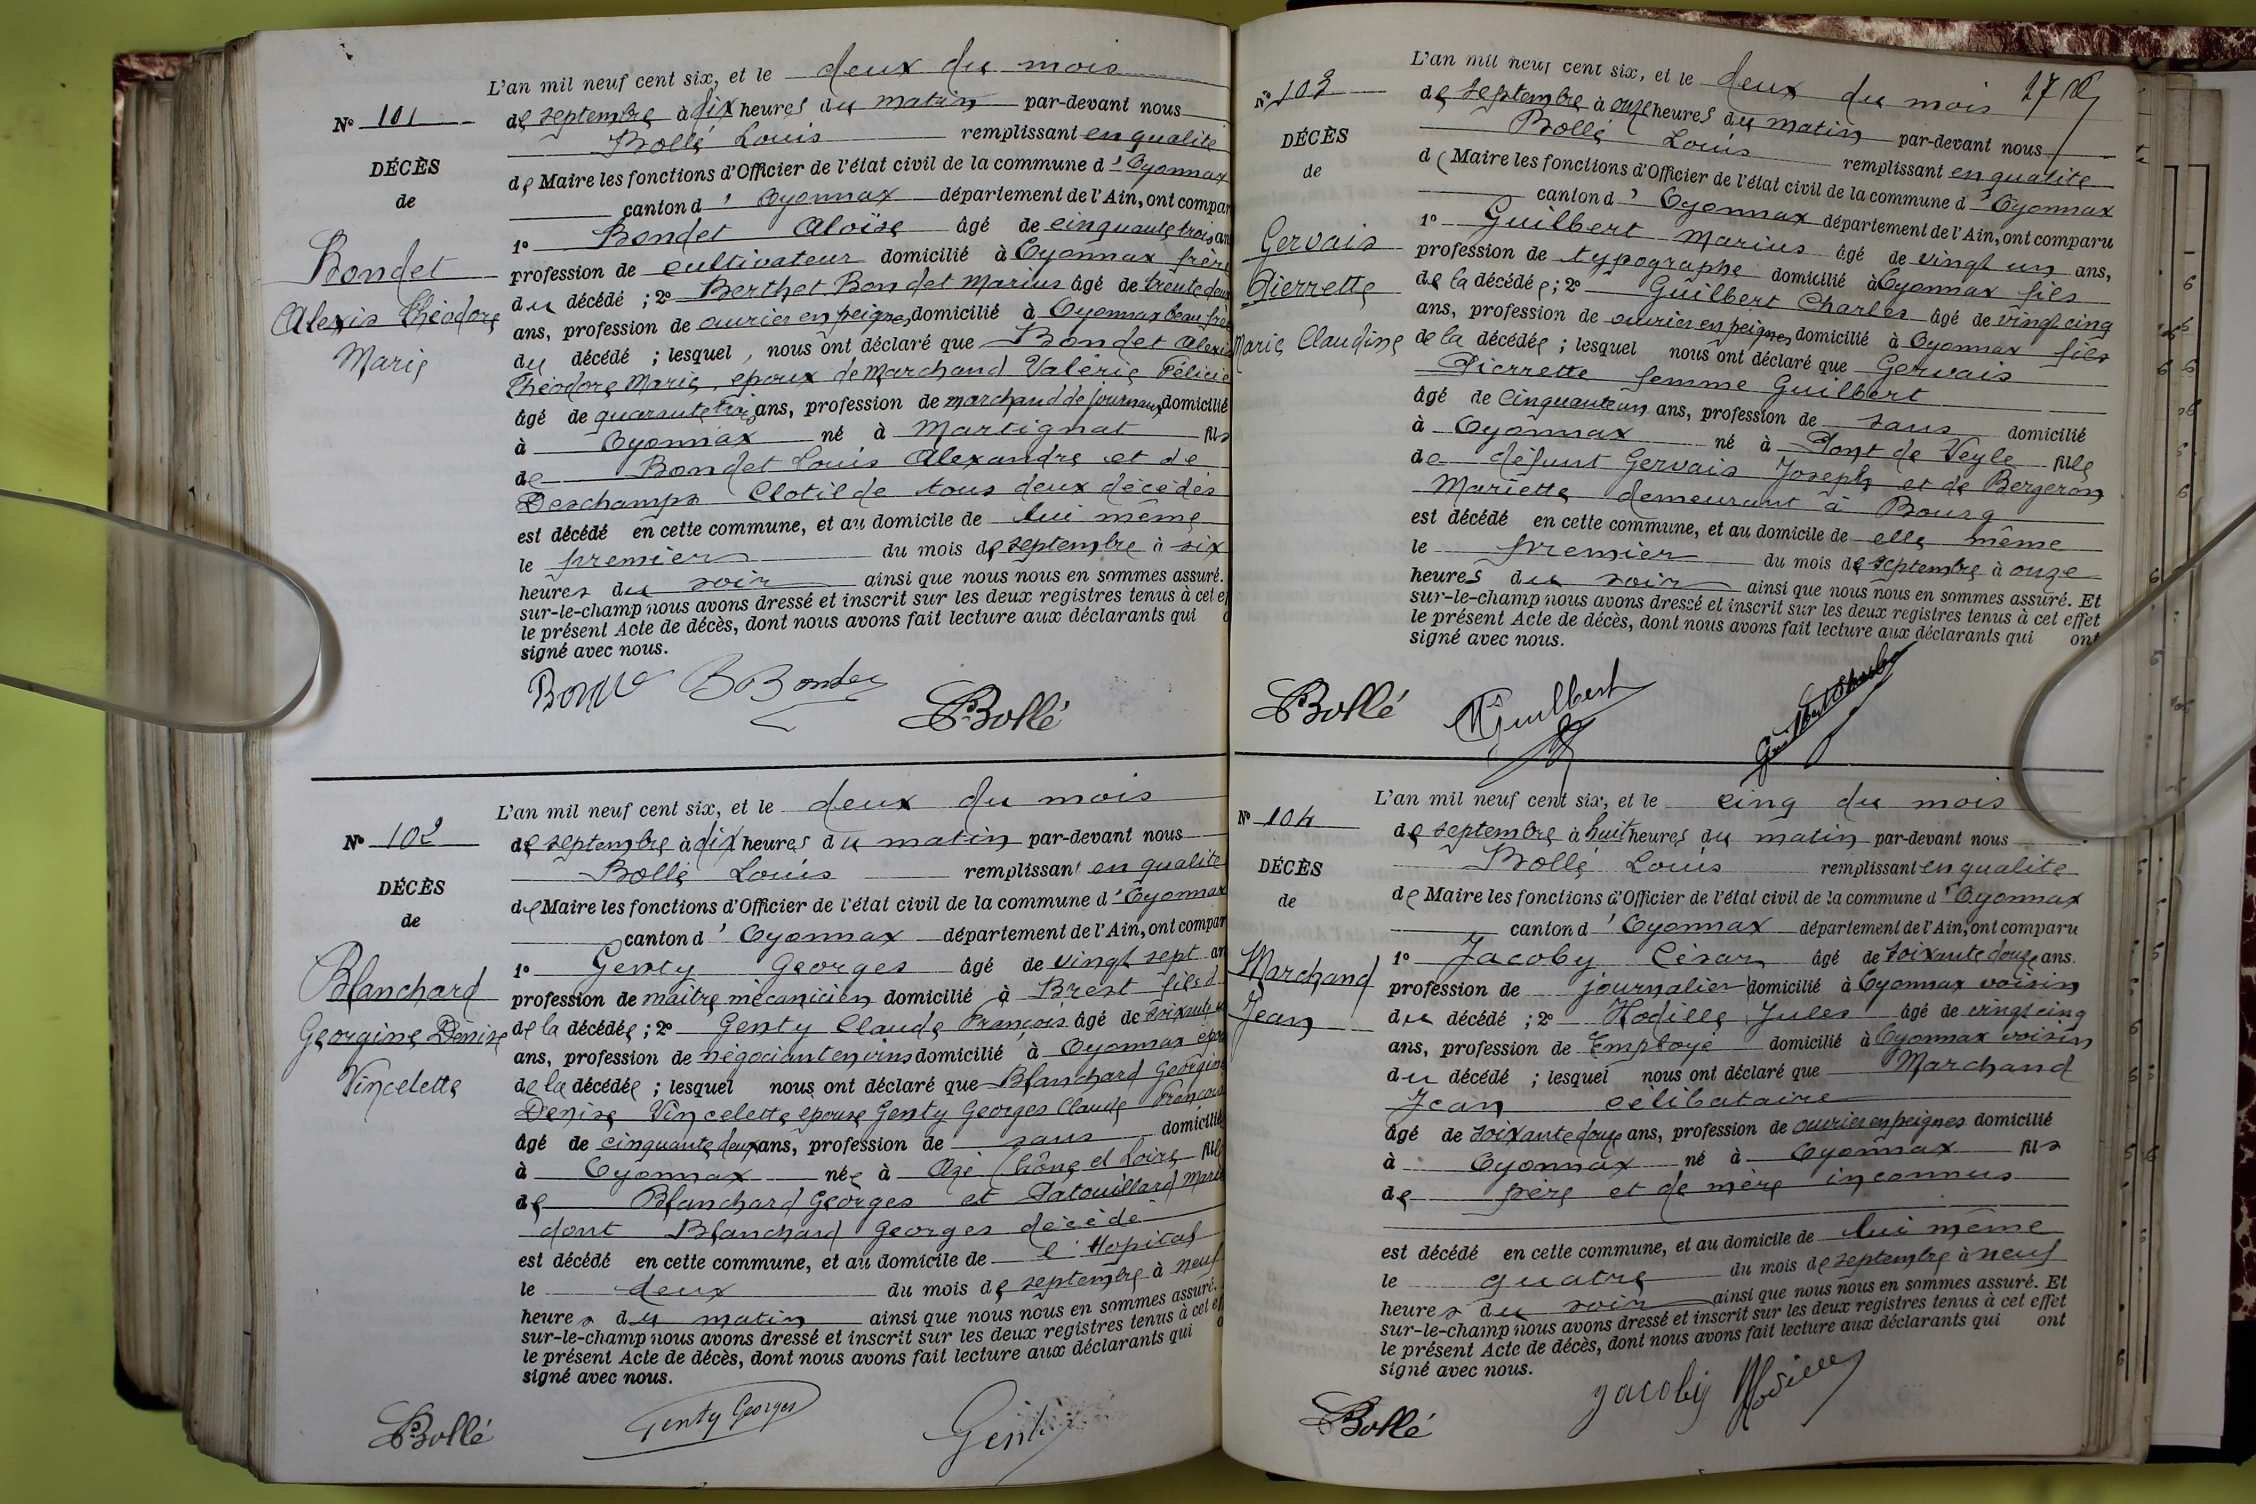 L'an mil neuf cent six, et le deux du mois
N° 101
de septembre à dix heures du matin par-devant nous
Bollé Louis remplissant en qualité
DÉCÈS
de Maire les fonctions d'Officier de l'état civil de la commune d'Oyonnax
de
canton d'Oyonnax département de l'Ain, ont compar
1° Bondet Aloïse âgé de cinquante trois an
Bondet
profession de cultivateur domicilié à Oyonnax frère
Alexis Théodore
du décédé ; 2° Berthet Bondet Marius âgé de trente deux
ans, profession de ouvrier en peignes domicilié à Oyonnax beau frère
Marie
du décédé ; lesquel, nous ont déclaré que Bondet Alexis
Théodore Marie, époux de Marchand Valérie Félicie
âgé de quarante trois ans, profession de marchand de journaux domicilié
à Oyonnax né à Martignat fils
de Bondet Louis Alexandre et de
Deschamps Clotilde tous deux décédés
est décédé en cette commune, et au domicile de lui même
le premier du mois de septembre à six
heures du soir ainsi que nous nous en sommes assuré.
sur-le-champ nous avons dressé et inscrit sur les deux registres tenus à cet ef
le présent Acte de décès, dont nous avons fait lecture aux déclarants qui o
signé avec nous.
B Bondet
Bollé
L'an mil neuf cent six, et le deux du mois
N° 102
de septembre à dix heures du matin par-devant nous
Bollé Louis remplissant en qualité
DÉCÈS
de Maire les fonctions d'Officier de l'état civil de la commune d'Oyonnax
de
canton d'Oyonnax département de l'Ain, ont compar
1° Genty Georges âgé de vingt sept an
Blanchard
profession de maître mécanicien domicilié à Brest fils d
Georgine Denise
de la décédée ; 2° Genty Claude François âgé de soixante
ans, profession de négociant en vins domicilié à Oyonnax époux
Vincelette
de la décédée ; lesquel nous ont déclaré que Blanchard Georgine
Denise Vincelette épouse Genty Georges Claude François
âgé de cinquante deux ans, profession de sans domicilié
à Oyonnax née à Azé (Saône et Loire fil
de Blanchard Georges et Patouillard Marie
dont Blanchard Georges décédé
est décédé en cette commune, et au domicile de l'Hopital
le deux du mois de septembre à neuf
heures du matin ainsi que nous nous en sommes assuré.
sur-le-champ nous avons dressé et inscrit sur les deux registres tenus à cet ef
le présent Acte de décès, dont nous avons fait lecture aux déclarants qui o
signé avec nous.
Bollé
Genty Georges
Genty
L'an mil neuf cent six, et le deux du mois 27
N° 103
de septembre à onze heures du matin par-devant nous
Bollé Louis remplissant en qualité
DÉCÈS
de Maire les fonctions d'Officier de l'état civil de la commune d'Oyonnax
de
canton d'Oyonnax département de l'Ain, ont comparu
1° Guilbert Marius âgé de vingt un ans,
Gervais
profession de typographe domicilié à Oyonnax fils
Pierrette
de la décédée ; 2° Guilbert Charles âgé de vingt cinq
ans, profession de ouvrier en peignes domicilié à Oyonnax fils
Marie Claudine
de la décédée ; lesquel nous ont déclaré que Gervais
Pierrette femme Guilbert
âgé de cinquante un ans, profession de sans domicilié
à Oyonnax né à Pont de Veyle fille
de défunt Gervais Joseph et de Bergeron
Mariette demeurant à Bourg
est décédé en cette commune, et au domicile de elle même
le premier du mois de septembre à onze
heures du soir ainsi que nous nous en sommes assuré. Et
sur-le-champ nous avons dressé et inscrit sur les deux registres tenus à cet effet
le présent Acte de décès, dont nous avons fait lecture aux déclarants qui ont
signé avec nous.
Bollé
Guilbert
Guilbert Charles
L'an mil neuf cent six, et le cinq du mois
N° 104
de septembre à huit heures du matin par-devant nous
Bollé Louis remplissant en qualité
DÉCÈS
de Maire les fonctions d'Officier de l'état civil de la commune d'Oyonnax
de
canton d'Oyonnax département de l'Ain, ont comparu
1° Jacoby César âgé de soixante douze ans.
Marchand
profession de journalier domicilié à Oyonnax voisin
Jean
du décédé ; 2° Hodille Jules âgé de vingt cinq
ans, profession de Employé domicilié à Oyonnax voisin
du décédé ; lesquel nous ont déclaré que Marchand
Jean célibataire
âgé de soixante douze ans, profession de ouvrier en peignes domicilié
à Oyonnax né à Oyonnax fils
de père et de mère inconnus
est décédé en cette commune, et au domicile de lui même
le quatre du mois de septembre à neuf
heures du soir ainsi que nous nous en sommes assuré. Et
sur-le-champ nous avons dressé et inscrit sur les deux registres tenus à cet effet
le présent Acte de décès, dont nous avons fait lecture aux déclarants qui ont
signé avec nous.
Bollé
Jacoby Hodille